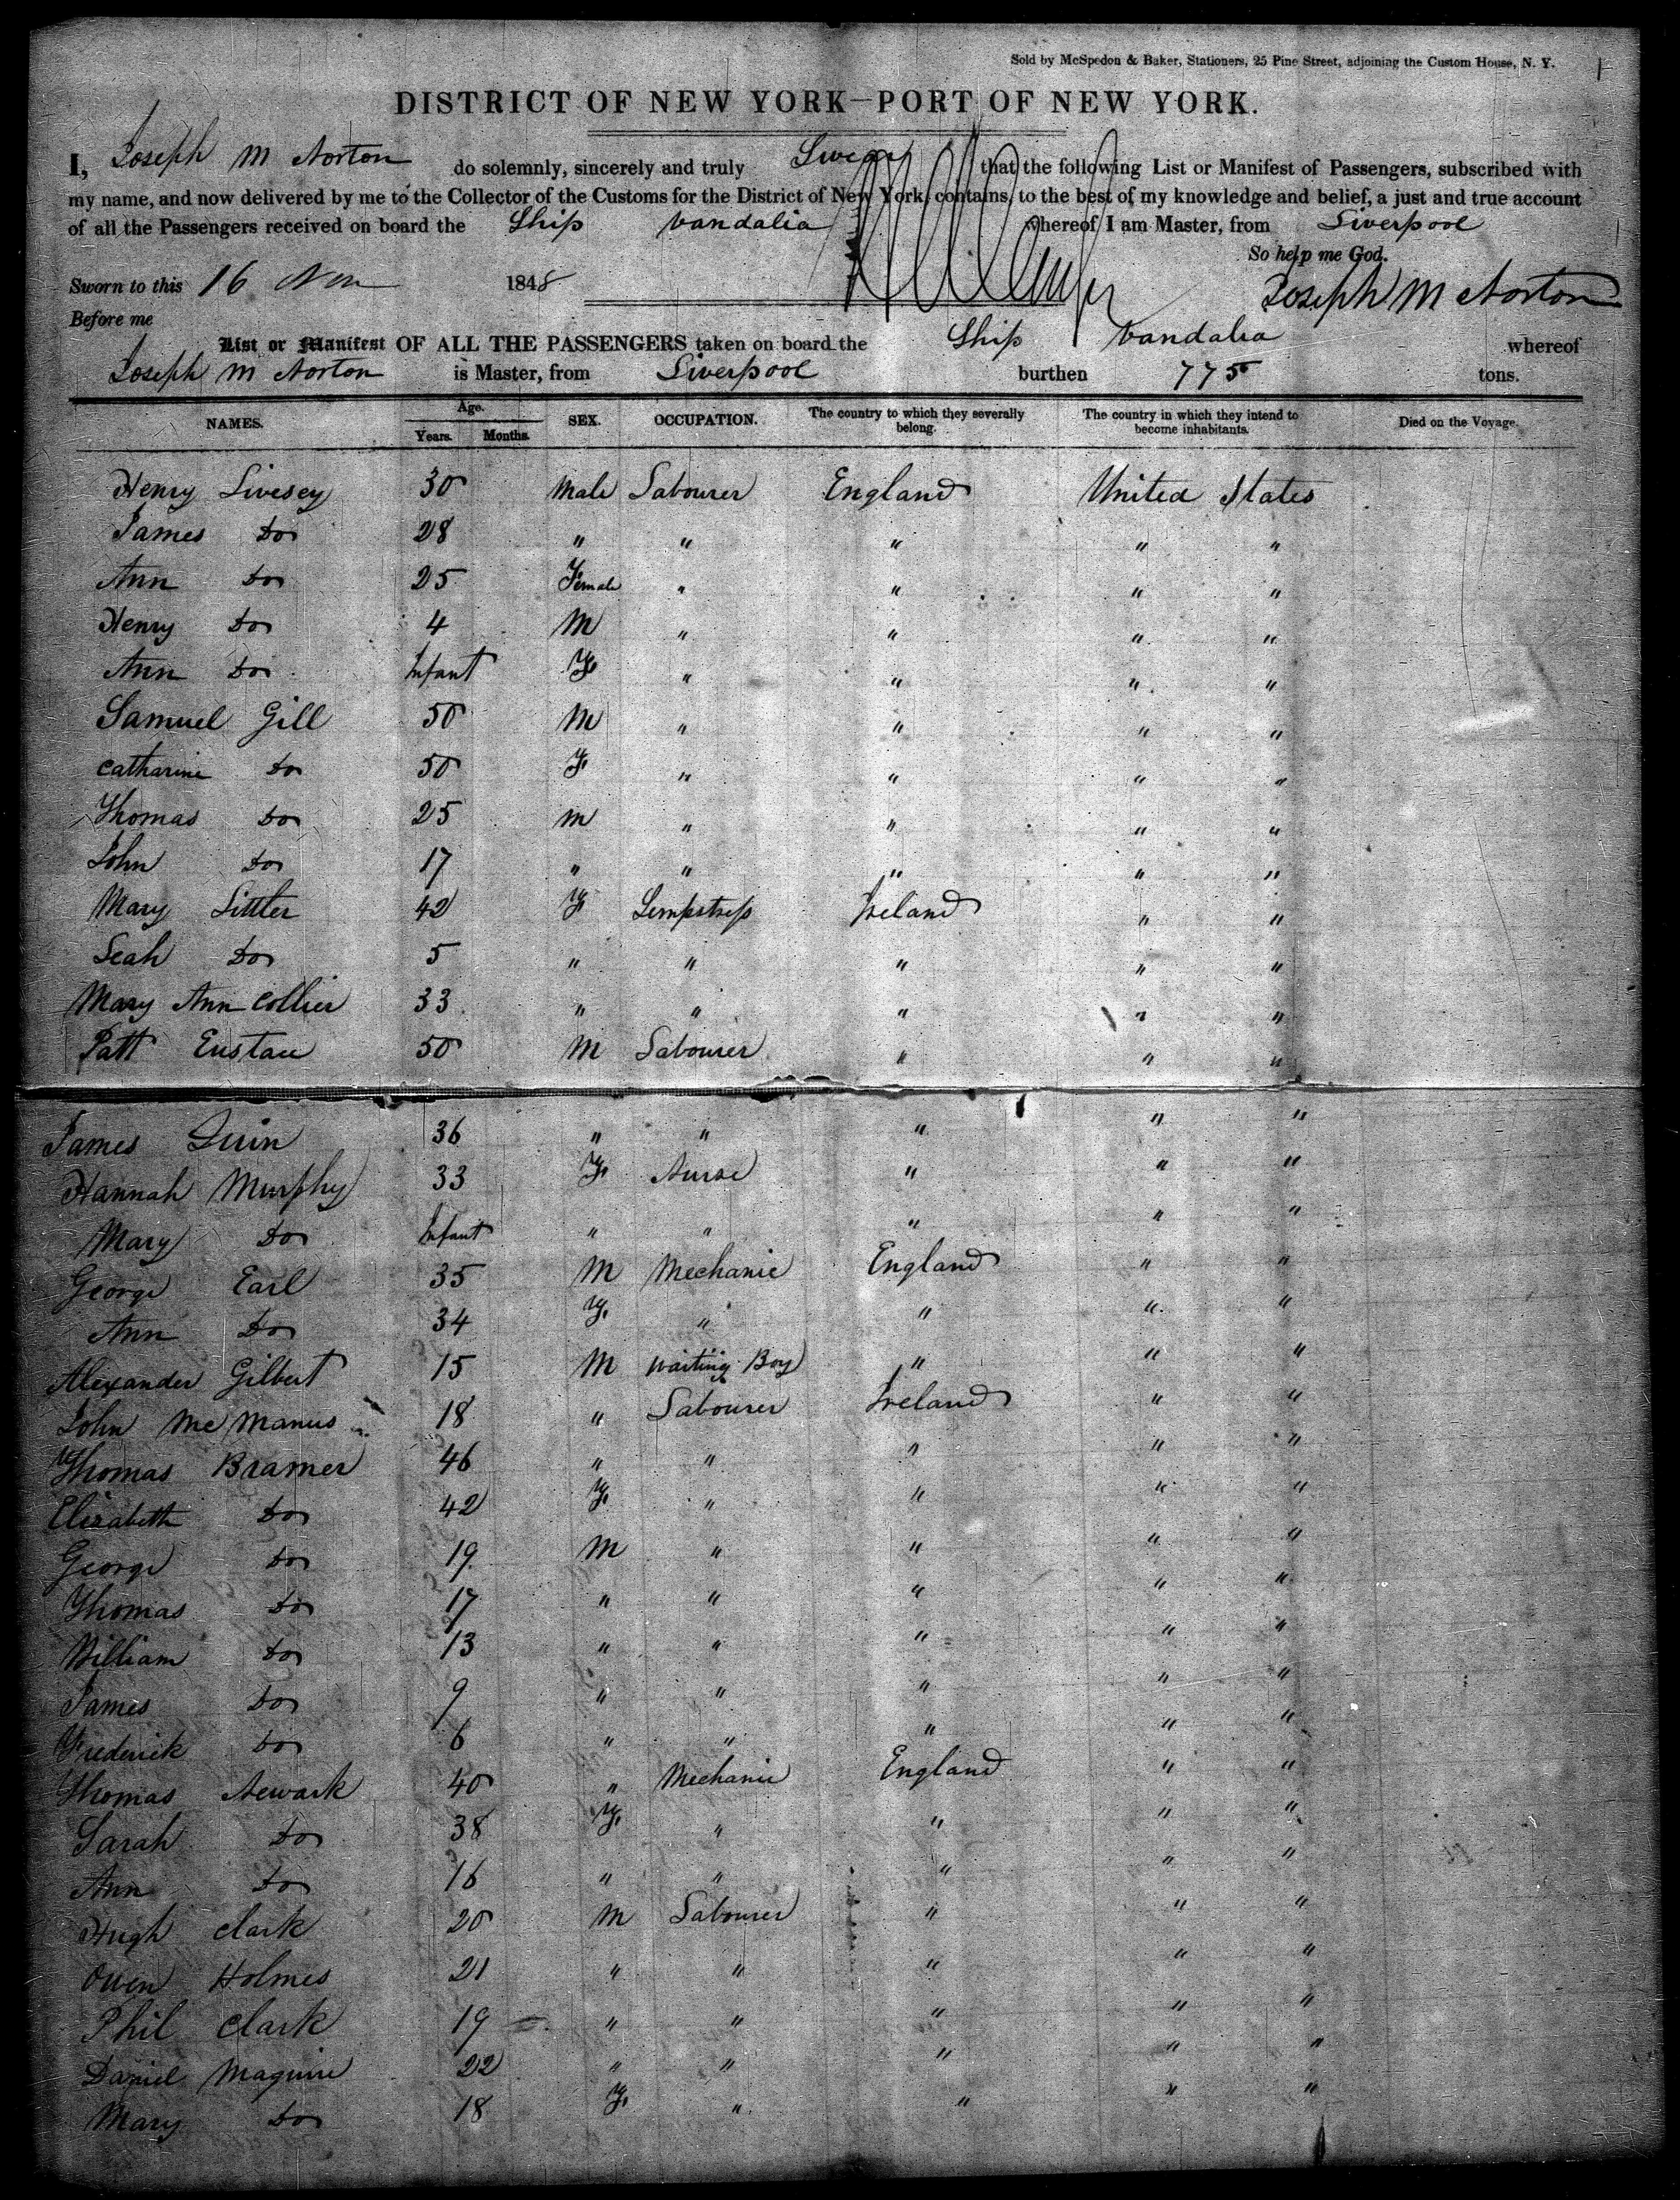 Sold by McSpedon & Baker, Stationers, 25 Pine Street, adjoining the Custom House, N. Y.
DISTRICT OF NEW YORK—PORT OF NEW YORK.
I, Joseph M Norton do solemnly, sincerely and truly Swear that the following List or Manifest of Passengers, subscribed with
my name, and now delivered by me to the Collector of the Customs for the District of New York, contains, to the best of my knowledge and belief, a just and true account
of all the Passengers received on board the Ship Vandalia whereof I am Master, from Liverpool
So help me God.
Sworn to this 16 Nov 1848 Joseph M Norton
Before me
List or Manifest OF ALL THE PASSENGERS taken on board the Ship Vandalia whereof
Joseph M Norton is Master, from Liverpool burthen 775 tons.
NAMES. Age. Years. Months. SEX. OCCUPATION. The country to which they severally belong. The country in which they intend to become inhabitants. Died on the Voyage.
Henry Livesey 30 Male Labourer England United States
James Do 28 " " " " "
Ann Do 25 Female " " " "
Henry Do 4 M " " " "
Ann Do Infant F " " " "
Samuel Gill 50 M " " " "
Catharine Do 50 F " " " "
Thomas Do 25 M " " " "
John Do 17 " " " " "
Mary Littler 42 F Sempstress Ireland " "
Leah Do 5 " " " " "
Mary Ann Collier 33 " " " " "
Patt Eustace 50 M Labourer " " "
James Quin 36 " " " " "
Hannah Murphy 33 F Nurse " " "
Mary Do Infant " " " " "
George Earl 35 M Mechanic England " "
Ann Do 34 F " " " "
Alexander Gilbert 15 M Waiting Boy " " "
John McManus 18 " Labourer Ireland " "
Thomas Bramer 46 " " " " "
Elizabeth Do 42 F " " " "
George Do 19 M " " " "
Thomas Do 17 " " " " "
William Do 13 " " " " "
James Do 9 " " " " "
Frederick Do 6 " " " " "
Thomas Newark 40 " Mechanic England " "
Sarah Do 38 F " " " "
Ann Do 16 " " " " "
Hugh Clark 20 M Labourer " " "
Owen Holmes 21 " " " " "
Phil Clark 19 " " " " "
Daniel Maguire 22 " " " " "
Mary Do 18 F " " " "